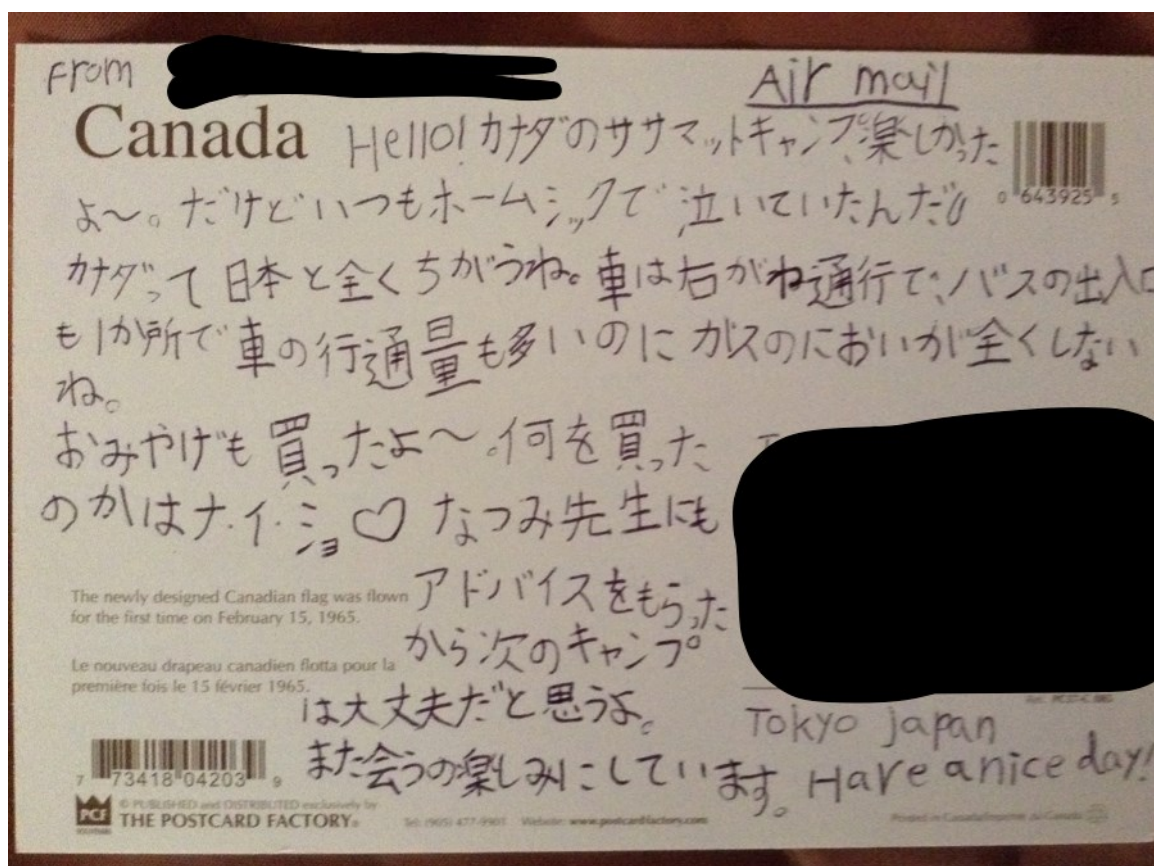 From
Air mail
Canada
Hello! カナダのササマットキャンプ、楽しかった
よ〜。だけどいつもホームシックで泣いていたんだ
0 643925 5
カナダって日本と全くちがうね。車は右がわ通行で、バスの出入口
も1か所で車の行通量も多いのにガスのにおいが全くしない
ね。
おみやげも買ったよ〜。何を買った
のかはナ・イ・ショ♡ なつみ先生にも
アドバイスをもらった
から次のキャンプ
は大丈夫だと思うよ。
また会うの楽しみにしています。Have a nice day!
Tokyo Japan
The newly designed Canadian flag was flown
for the first time on February 15, 1965.
Le nouveau drapeau canadien flotta pour la
première fois le 15 février 1965.
7 73418 04203 9
PCF
© PUBLISHED and DISTRIBUTED exclusively by
THE POSTCARD FACTORY®
Tel: (905) 477-9901 Website: www.postcardfactory.com
Printed in Canada/Imprimé du Canada